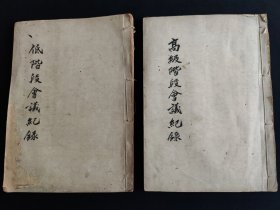 低階段會議紀錄
高級階段會議紀錄